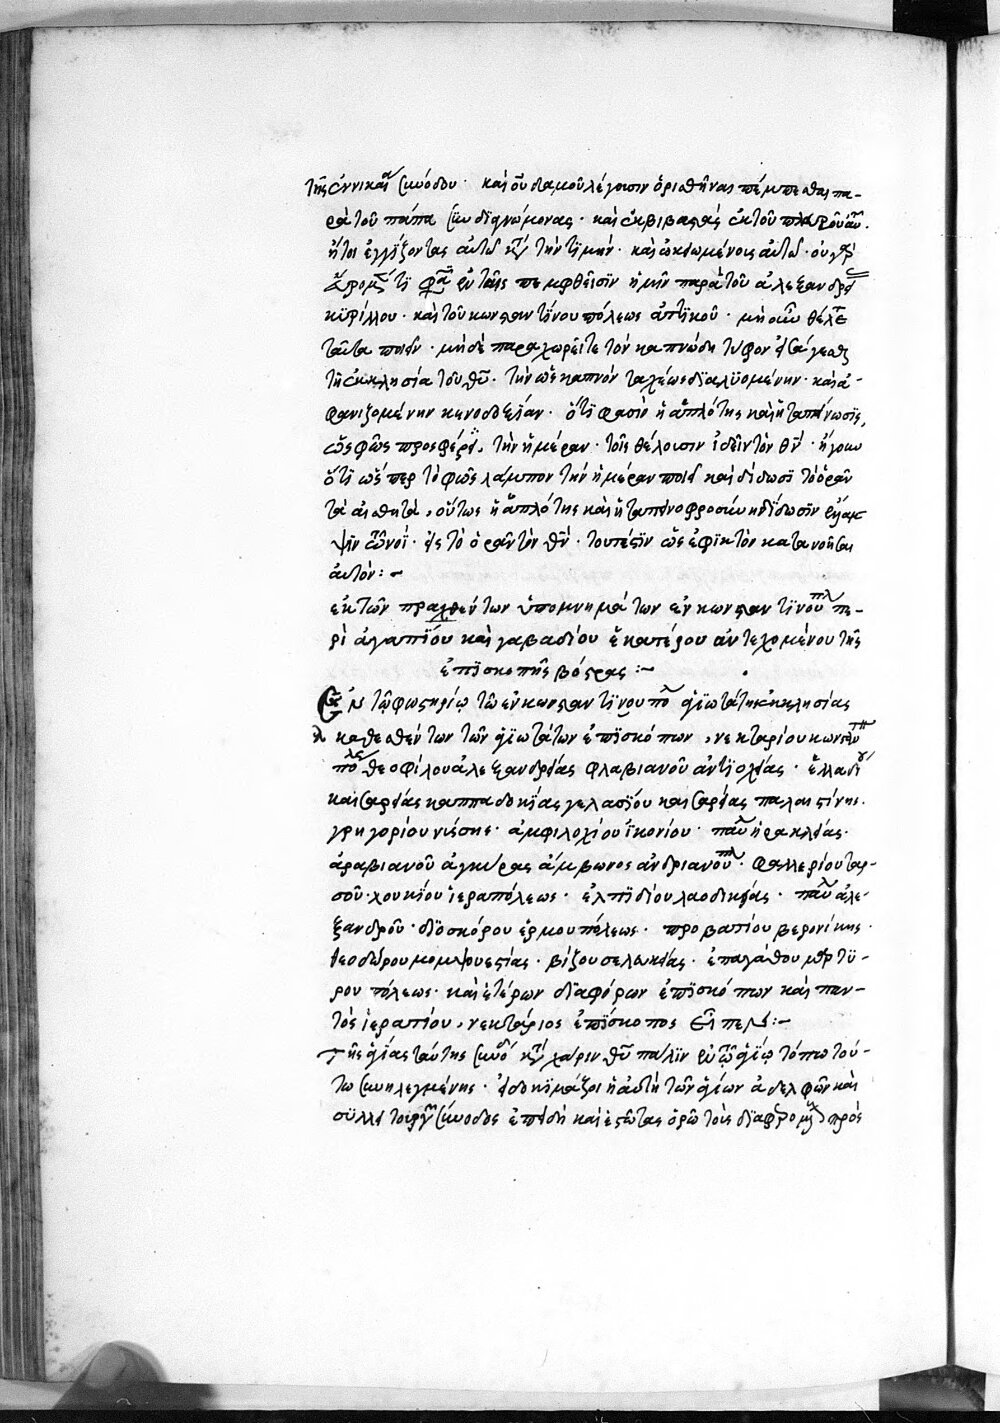 τῆς ἐν νικαία συνόδου· καὶ οὐδαμοῦ λέγουσιν ὁρισθῆναι πέμπεσθαι πα-
ρὰ τοῦ πάπα συνδιγνώμονας· καὶ ἐκβιβαστὰς ἐκ τοῦ πλευροῦ αὐτοῦ·
ἤτοι ἐγγίζοντας αὐτῶ κατὰ τὴν τιμήν· καὶ ὠκειωμένοις αὐτῶ· οὐ γὰρ
τι ἐν ταῖς πεμφθεῖσιν ἡμῖν παρὰ τοῦ ἀλεξανδρείας
κυρίλλου· καὶ τοῦ κωνσταντινουπόλεως ἀττικοῦ· μὴ οὖν θέλετε
ταῦτα ποιεῖν· μὴ δὲ παραχωρεῖτε τὸν καπνώδη τύφον εἰσάγεσθαι
τῆ ἐκκλησία τοῦ θῦ· τὴν ὡς καπνὸν ταχέως διαλυομένην· καὶ ἀ-
φανιζομένην κενοδοξίαν· ὅτι φασὶν ἡ ἁπλότης καὶ ἡ ταπείνωσις,
ὡς φῶς προσφέρει, τὴν ἡμέραν· τοῖς θέλουσιν ἰδεῖν τὸν θν· ἤγουν
ὅτι ὥσπερ τὸ φῶς λάμπον τὴν ἡμέραν ποιεῖ καὶ δίδωσι τὸ ὁρᾶν
τὰ αἰσθητὰ, οὕτως ἡ ἁπλότης καὶ ἡ ταπεινοφροσύνη δίδωσιν ἔλλαμ-
ψιν τῶ νοΐ· εἰς τὸ ὁρᾶν τὸν θν· τουτέστιν ὡς ἐφικτὸν κατανοῆσαι
αὐτόν:-
ἐκ τῶν πραχθέντων ὑπομνημάτων ἐν κωνσταντινουπόλ πε-
ρὶ ἀγαπίου καὶ γαβαδίου ἑκατέρου ἀντεχομένου τῆς
ἐπισκοπῆς βόστρας:-
Ἐν τῶ φωτιστηρίω τῶ ἐν κωνσταντινουπόλ ἁγιωτάτης ἐκκλησίας
καθεσθέντων τῶν ἁγιωτάτων ἐπισκόπων, νεκταρίου κωνσταντινου
πόλεως θεοφίλου ἀλεξανδρείας φλαβιανοῦ ἀντιοχείας· ἑλλαδίου
καισαρείας καππαδοκίας γελασίου καισαρείας παλαιστίνης·
γρηγορίου νύσσης· ἀμφιλοχίου ἰκονίου· παύλου ἡρακλείας·
ἀραβιανοῦ ἀγκύρας ἄμβωνος ἀνδριανουπόλ· φαλλερίου ταρ-
σοῦ· λουκίου ἱεραπόλεως· ἐλπιδίου λαοδικείας· παύλου ἀλε-
ξανδροῦ· διοσκόρου ἑρμουπόλεως· προβατίου βερονίκης·
θεοδώρου μομψουεστίας· βίζου σελευκείας· ἐπαγάθου μαρτυ-
ρουπόλεως· καὶ ἑτέρων διαφόρων ἐπισκόπων καὶ παν-
τὸς ἱερατίου, νεκτάριος ἐπίσκοπος εἶπεν:-
τῆς ἁγίας ταύτης συνόδου κατὰ χάριν θῦ πάλιν ἐν τῶ ἁγίω τόπω τού-
τω συνηλεγμένης· εἰ δοκιμάζοι ἡ αὐτὴ τῶν ἁγίων ἀδελφῶν καὶ
συλλειτουργῶν σύνοδος ἐπειδὴ καὶ ἑστῶτας ὁρῶ τοὺς διαφερομένους πρὸς